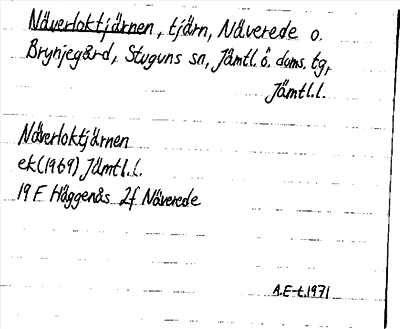 Näverloktjärnen, tjärn, Näverede o.
Brynjegård, Stuguns sn, Jämtl. ö. doms. tg,
Jämtl.l.
Näverloktjärnen
ek(1969) Jämtl.l.
19 F Häggenås 2f Näverede
A.E-t.1971